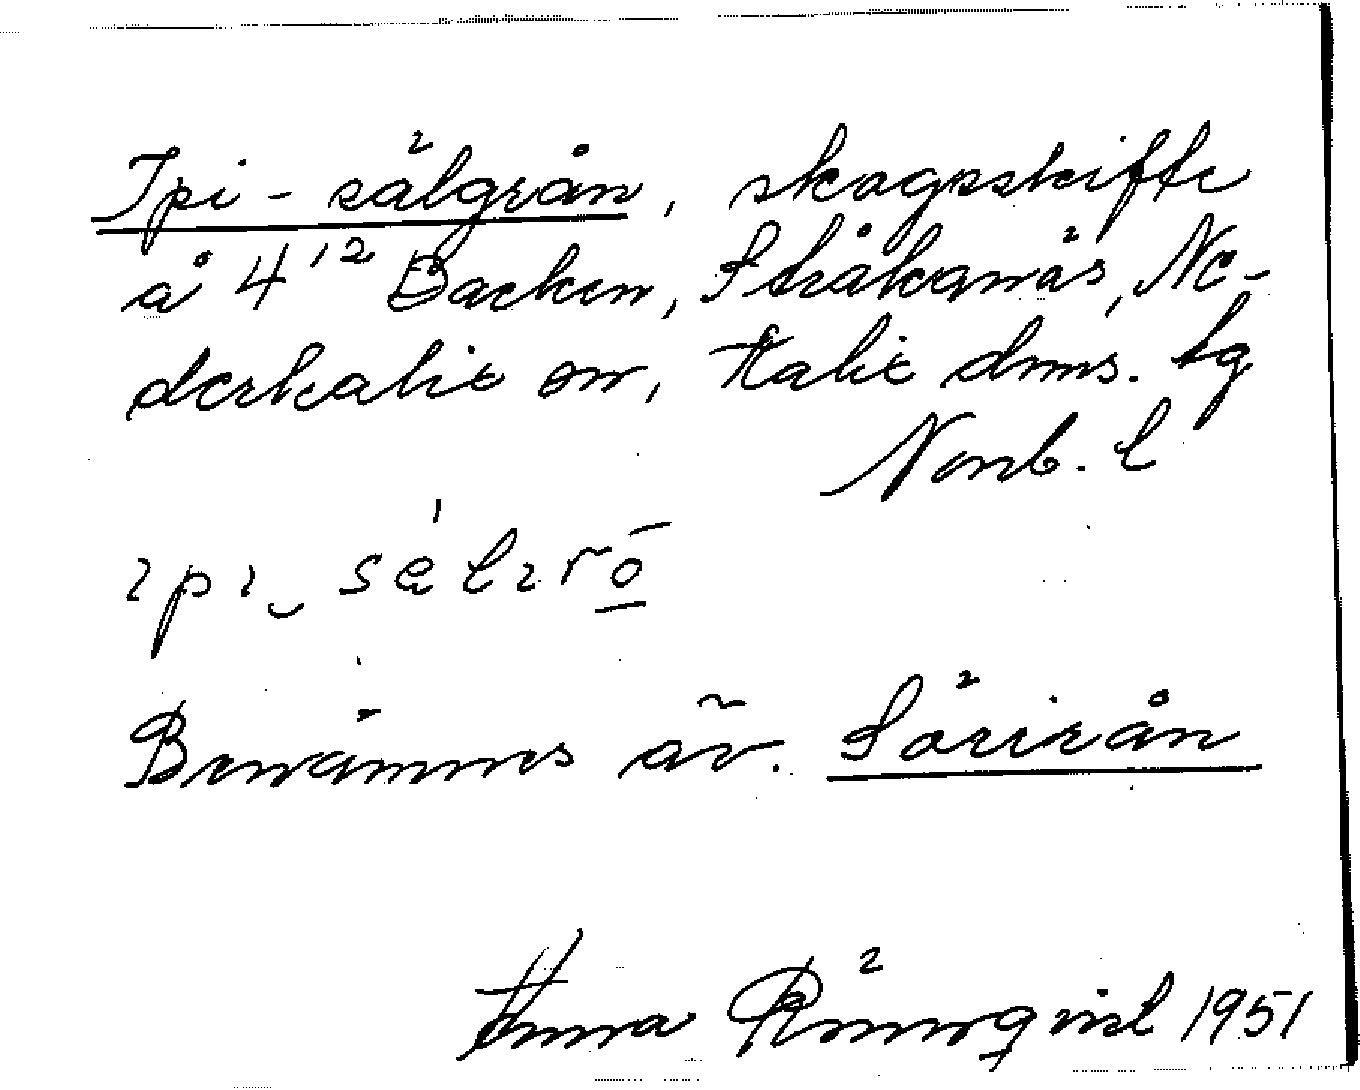 Ipi-sälgrån, skogsskifte
å 4¹² Backen, Stråkanäs, Ne-
derkalix sn, Kalix dms. tg
Norrb. l
ıpı sélırō
Benämnes äv. Sörirån
Anna Rönnqvist 1951